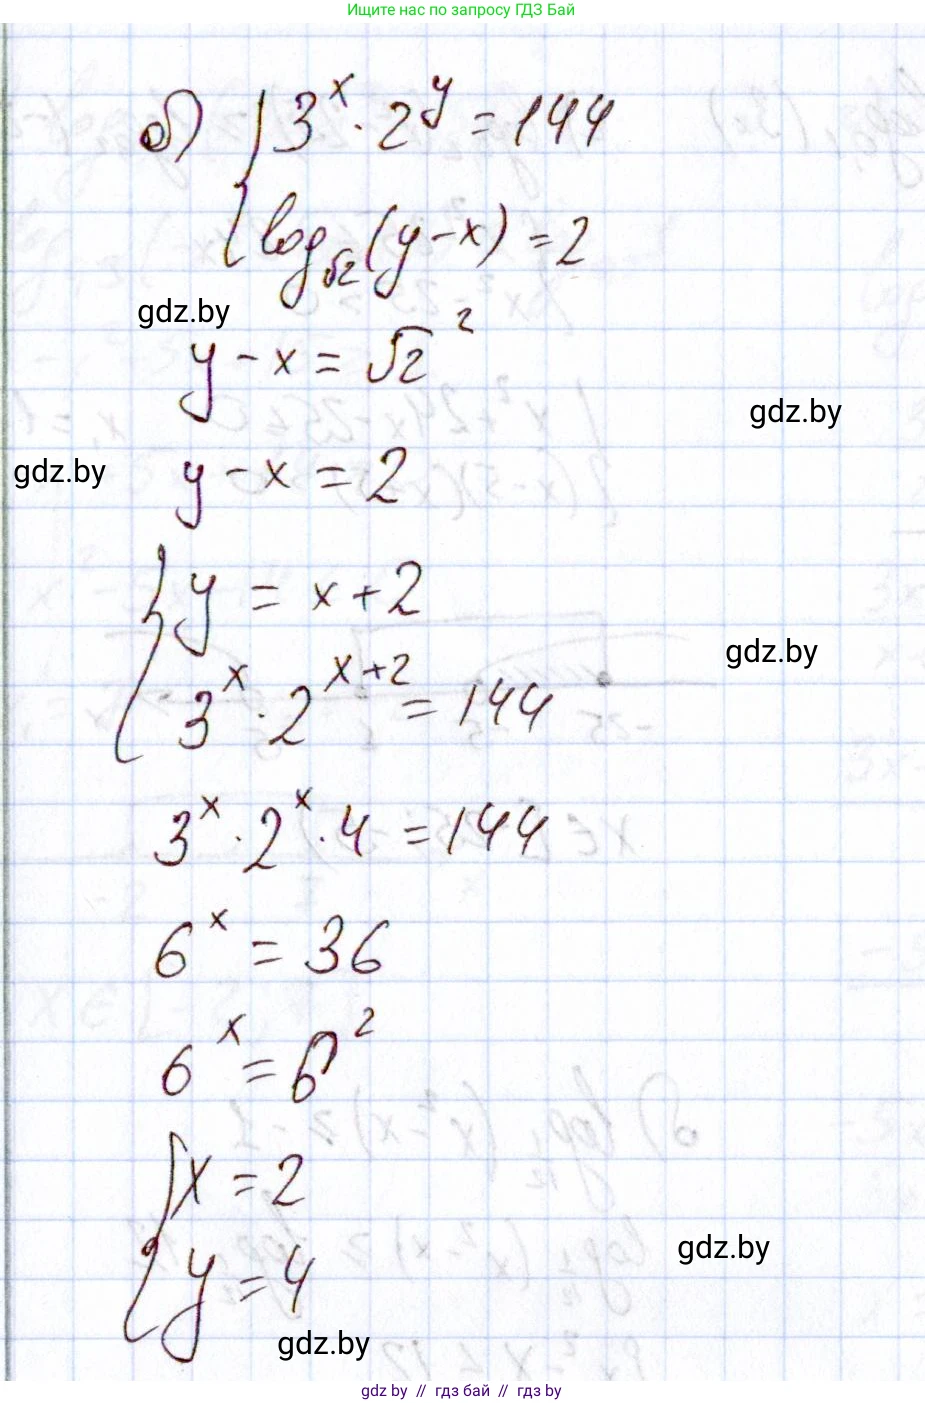 Ищите нас по запросу ГДЗ Бай
б) { 3^x · 2^y = 144
log_√2 (y - x) = 2
gdz.by
y - x = √2^2
gdz.by
gdz.by
y - x = 2
{ y = x + 2
gdz.by
3^x · 2^(x+2) = 144
3^x · 2^x · 4 = 144
6^x = 36
6^x = 6^2
{ x = 2
gdz.by
y = 4
gdz.by
gdz by // гдз бай // гдз by